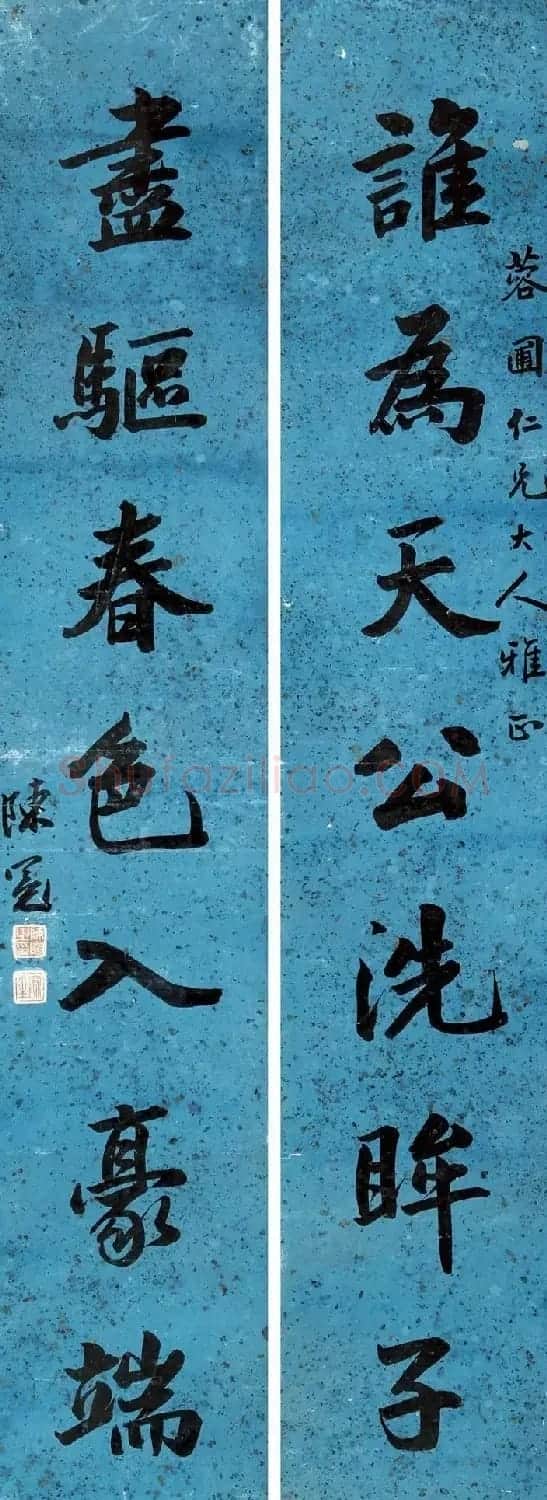 蓉圃仁兄大人雅正
誰為天公洗眸子
盡驅春色入豪端
陳冕
Shufaziliao.COM